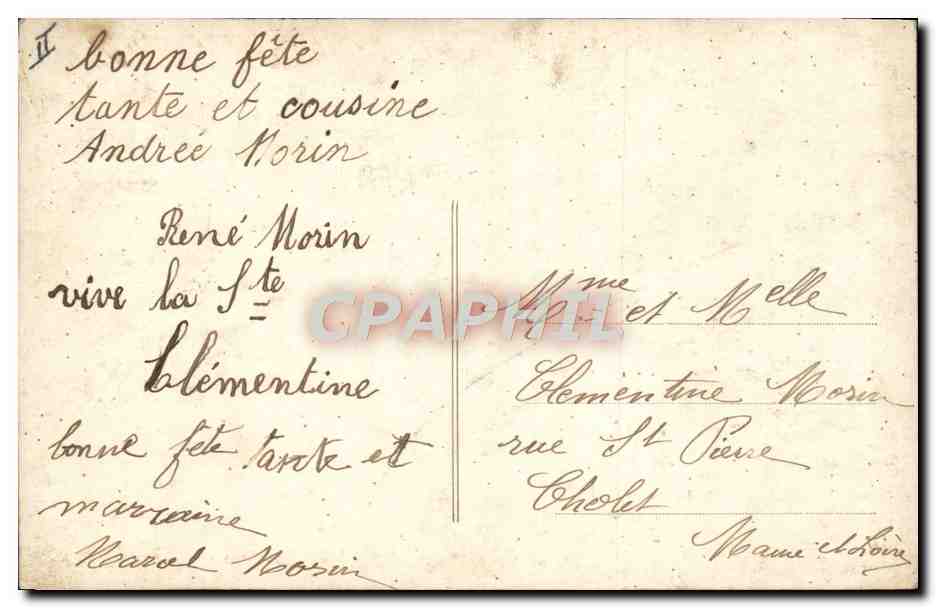 II
bonne fête
tante et cousine
Andrée Morin
René Morin
vive la Ste
Clémentine
bonne fête tante et
marraine
Marcel Morin
Mme et Melle
Clementine Morin
rue St Pierre
Cholet
Maine et Loire
CPAPHIL